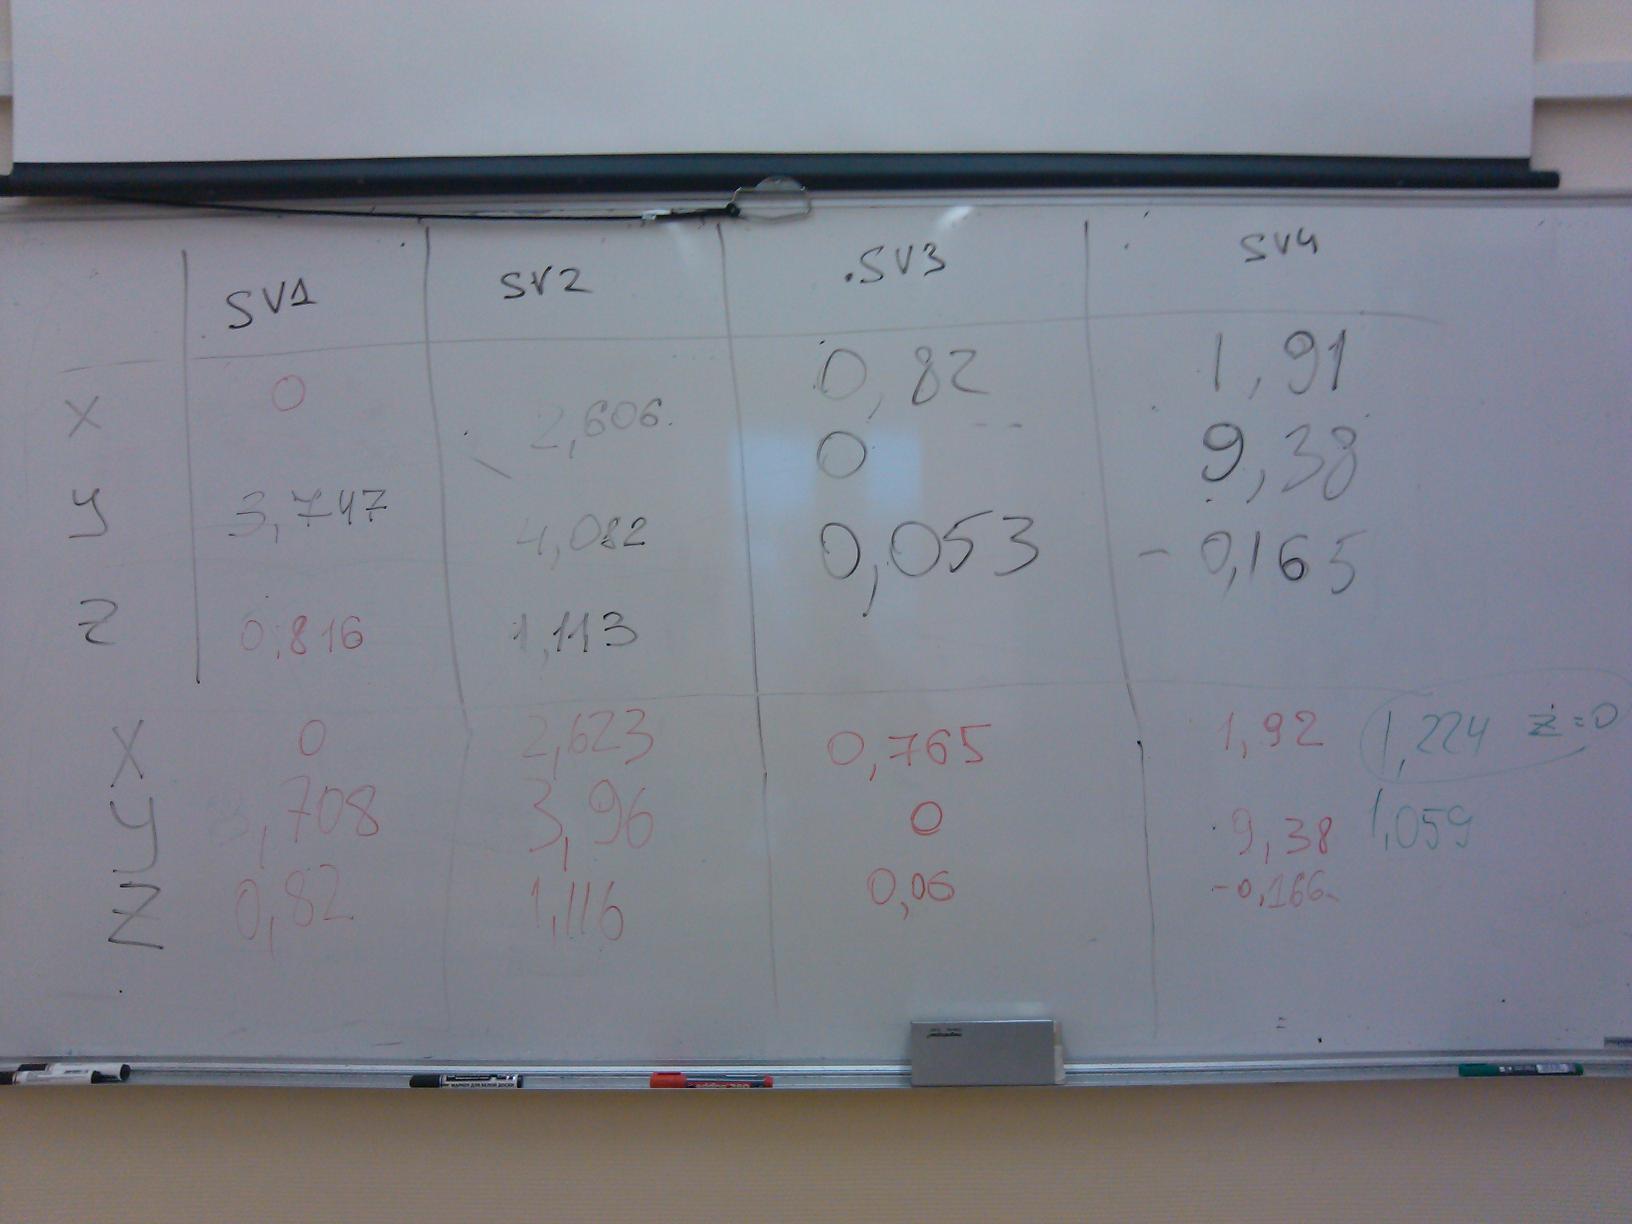 SV1 SV2 SV3 SV4
x 0 2,606 0,82 1,91
y 3,747 4,082 0 9,38
z 0,816 1,113 0,053 -0,165
X 0 2,623 0,765 1,92 1,224 z=0
Y 3,708 3,96 0 9,38 1,059
Z 0,82 1,116 0,06 -0,166
МАРКЕР ДЛЯ БЕЛОЙ ДОСКИ